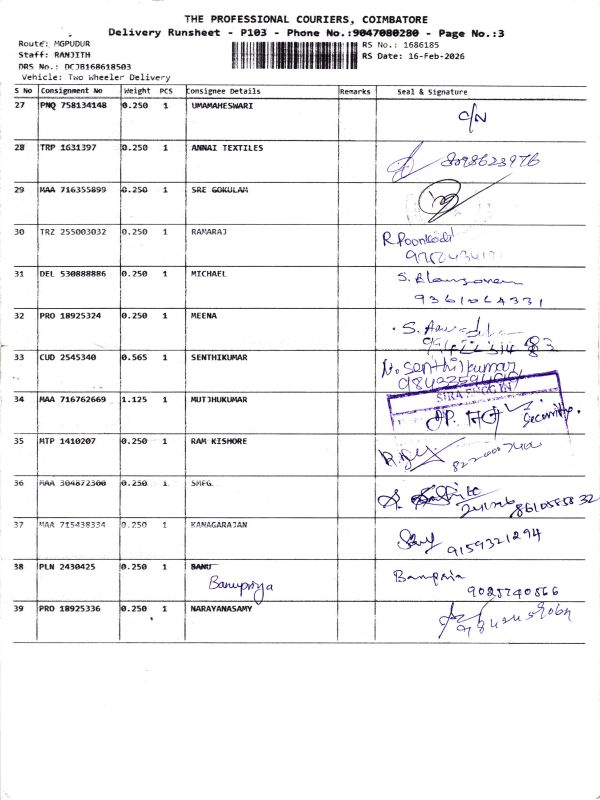 THE PROFESSIONAL COURIERS, COIMBATORE
Delivery Runsheet - P103 - Phone No.:9047080280 - Page No.:3
Route: MGPUDUR
RS No.: 1686185
Staff: RANJITH
RS Date: 16-Feb-2026
DRS No.: DCJB168618503
Vehicle: Two Wheeler Delivery
S No Consignment No Weight PCS Consignee Details Remarks Seal & Signature
27 PNQ 758134148 0.250 1 UMAMAHESWARI C/N
28 TRP 1631397 0.250 1 ANNAI TEXTILES 8098623976
29 MAA 716355899 0.250 1 SRE GOKULAM
30 TRZ 255003032 0.250 1 RAMARAJ R Poonkodi
31 DEL 530888886 0.250 1 MICHAEL S.
9361064331
32 PRO 18925324 0.250 1 MEENA S.
33 CUD 2545340 0.565 1 SENTHIKUMAR N. Senthilkumar
34 MAA 716762669 1.125 1 MUTJHUKUMAR
35 MTP 1410207 0.250 1 RAM KISHORE
36 MAA 304872300 0.250 1 SMFG
8610585832
37 MAA 715438334 0.250 1 KANAGARAJAN
9159321294
38 PLN 2430425 0.250 1 BANU Banpria
Banupriya 9025740566
39 PRO 18925336 0.250 1 NARAYANASAMY